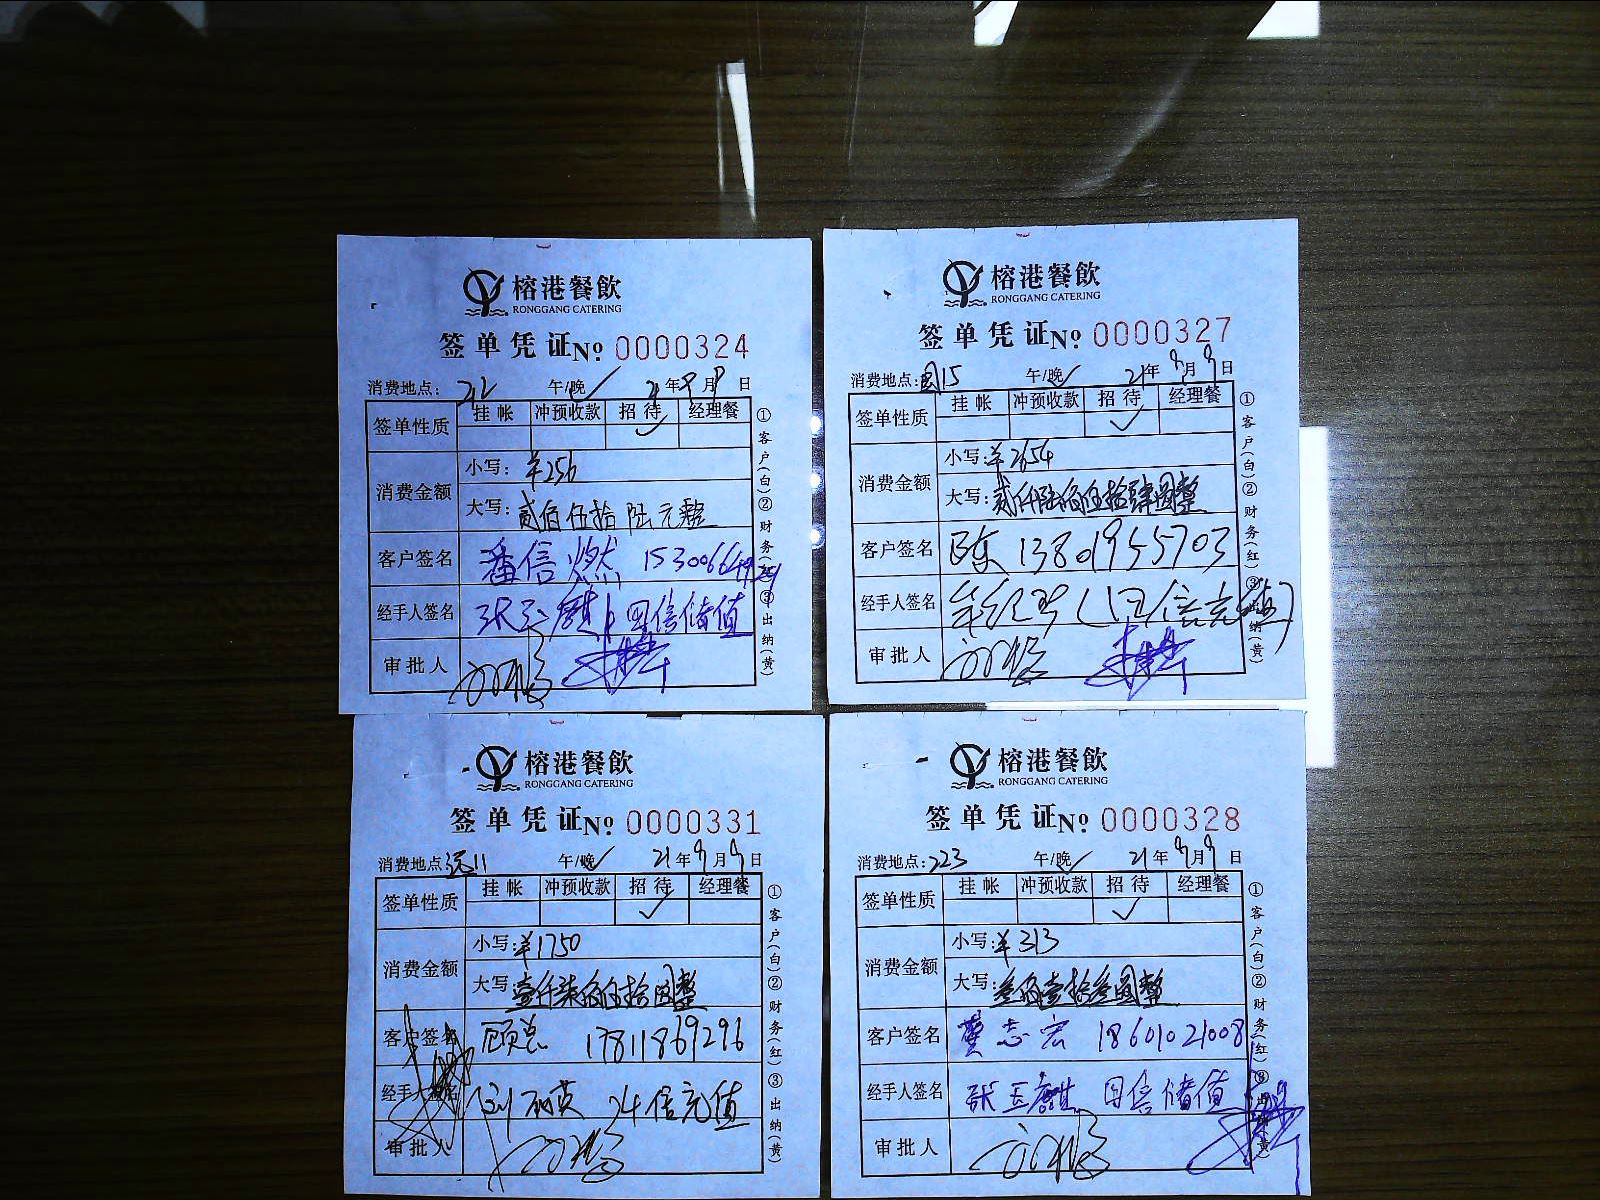 榕港餐飲
RONGGANG CATERING
签单凭证 No 0000324
消费地点: 212 午/晚✓ 21年9月9日
签单性质 挂帐 冲预收款 招待 经理餐
✓
小写: ¥256
消费金额
大写: 贰佰伍拾陆元整
客户签名 潘信燃
经手人签名 四倍储值
审批人
①客户(白)②财务(红)③出纳(黄)
榕港餐飲
RONGGANG CATERING
签单凭证 No 0000327
消费地点: 15 午/晚✓ 21年9月9日
签单性质 挂帐 冲预收款 招待 经理餐
✓
小写: ¥2654
消费金额
大写: 贰仟陆佰伍拾肆圆整
客户签名 陈 13801955703
经手人签名
审批人
①客户(白)②财务(红)③出纳(黄)
榕港餐飲
RONGGANG CATERING
签单凭证 No 0000331
消费地点: 11 午/晚✓ 21年9月9日
签单性质 挂帐 冲预收款 招待 经理餐
✓
小写: ¥1750
消费金额
大写: 壹仟柒佰伍拾圆整
客户签名 顾总 17811869296
经手人签名 4倍充值
审批人
①客户(白)②财务(红)③出纳(黄)
榕港餐飲
RONGGANG CATERING
签单凭证 No 0000328
消费地点: 223 午/晚✓ 21年9月9日
签单性质 挂帐 冲预收款 招待 经理餐
✓
小写: ¥313
消费金额
大写: 叁佰壹拾叁圆整
客户签名 志宏 18601021008
经手人签名 张玉麒 四倍储值
审批人
①客户(白)②财务(红)③出纳(黄)